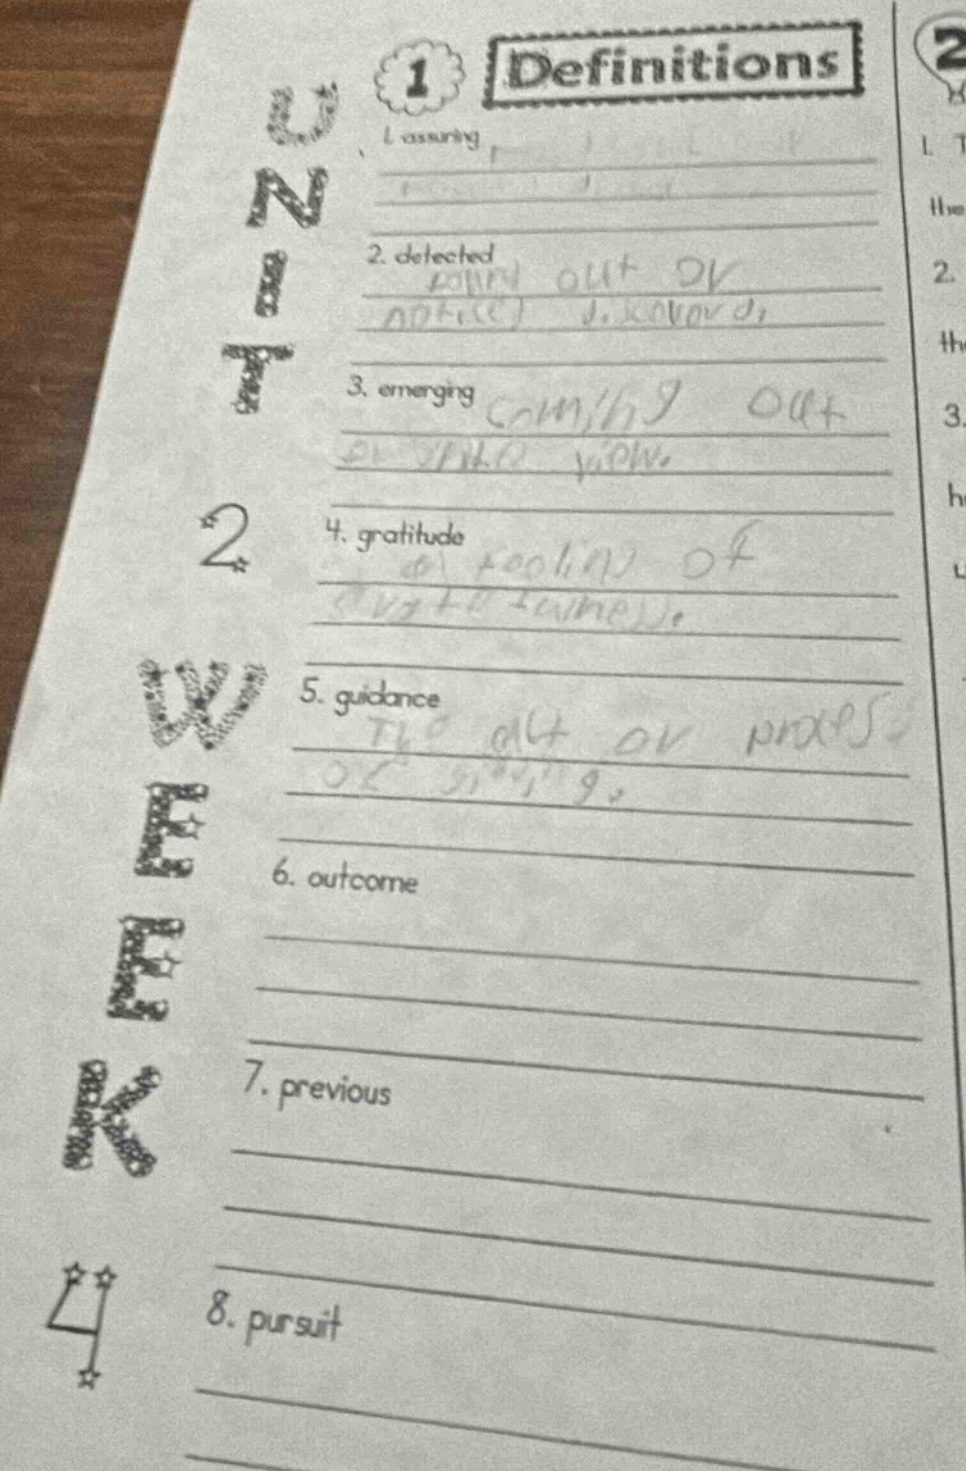 UNIT 2 WEEK 4
1 Definitions
1. assuring
2. detected
found out or
noticed discoverd.
3. emerging coming out
or into view.
4. gratitude
a feeling of
5. guidance
The act or proces
of giving.
6. outcome
7. previous
8. pursuit
2
1. T
the
2.
th
3.
h